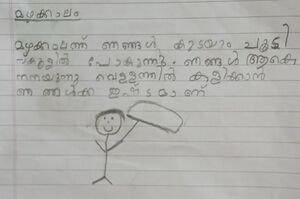 മഴക്കാലം
മഴക്കാലത്ത് ഞങ്ങൾ കുടയും ചൂടി
സ്കൂളിൽ പോകുന്നു. ഞങ്ങൾ ആകെ
നനയുന്നു വെള്ളത്തിൽ കളിക്കാൻ
ഞങ്ങൾക്ക് ഇഷ്ടമാണ്